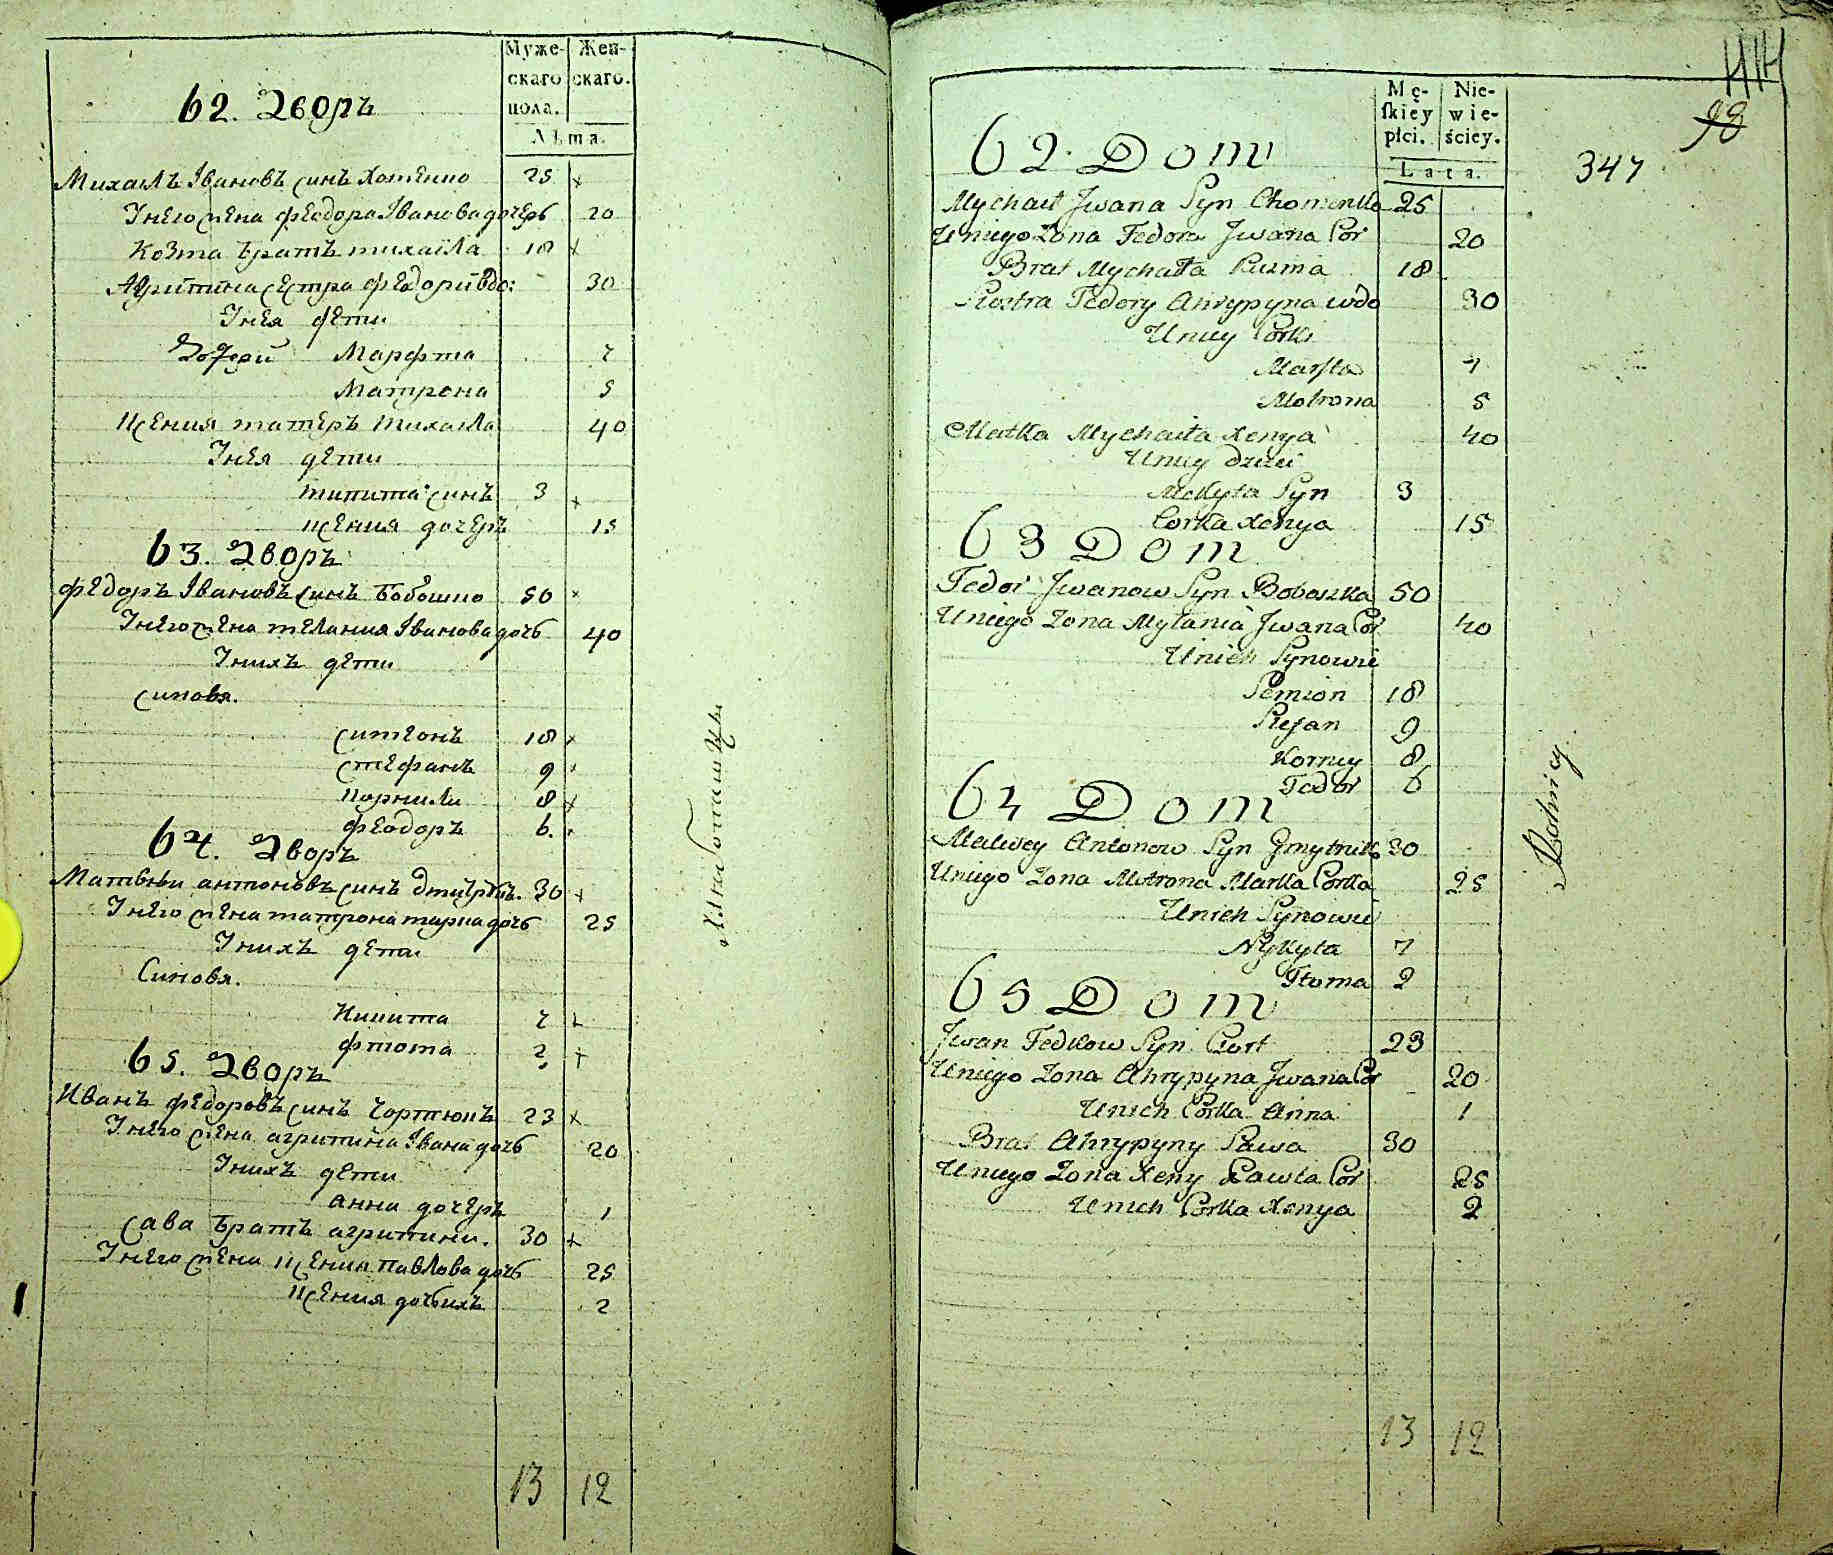 Муже-
скаго
пола.
Жен-
скаго.
Лѣта.
62. Дворъ
Михаилъ Івановъ синъ Хоменко 25
Унего жена феодора Іванова дочерь 20
Козма братъ михайла 18
Агрипина сестра феодори вдо: 30
Унея дети
дочери Марфта 7
Матрона 5
Ксения матеръ михайла 40
Унея дети
микита синъ 3
ксения дочеръ 15
63. Дворъ
федоръ Івановъ синъ Бобошко 50
Унего жена мелания Іванова дочь 40
Унихъ дети
синовя.
симеонъ 18
стефанъ 9
корнили 8
феодоръ 6.
64. Дворъ
Матвѣи антоновъ синъ 30
Унего жена матрона марка дочь 25
Унихъ дети
Синовя.
Никита 7
фтома 2
65. Дворъ
Иванъ федоровъ синъ Чортюкъ 23
Унего жена агрипина Івана дочь 20
Унихъ дети
анна дочеръ 1
Сава братъ агрипини. 30
Унего жена ксения павлова дочь 25
ксения дочь ихъ 2
13 12
Mę-
ſkiey
płci.
Nie-
wie-
ściey.
Lata.
98
347
62. Dom
Mychaił Jwana Syn Chomenko 25
Uniego Zona Fedora Jwana Cor 20
Brat Mychaiła Kuzma 18
Siostra Fedory Ahrypyna wdo 30
Uniey Corki
Marfta 7
Motrona 5
Matka Mychaiła Xenya 40
Uniey dzieci
Mekyta Syn 3
Corka Xenya 15
63 Dom
Fedor Jwanow Syn Boboszka 50
Uniego Zona Mylania Jwana Cor 40
Unich Synowie
Semion 18
Stefan 9
Korniy 8
Fedor 6
64 Dom
Matwey Antonow Syn 30
Uniego Zona Motrona Marka Corka 25
Unich Synowie
Nykyta 7
Ftoma 2
65 Dom
Jwan Fedkow Syn Czort 23
Uniego Zona Ahrypyna Jwana Cor 20
Unich Corka Anna 1
Brat Ahrypyny Sawa 30
Uniego Zona Xeny Pawła Cor 25
Unich Corka Xenya 2
Rolnicy
13 12